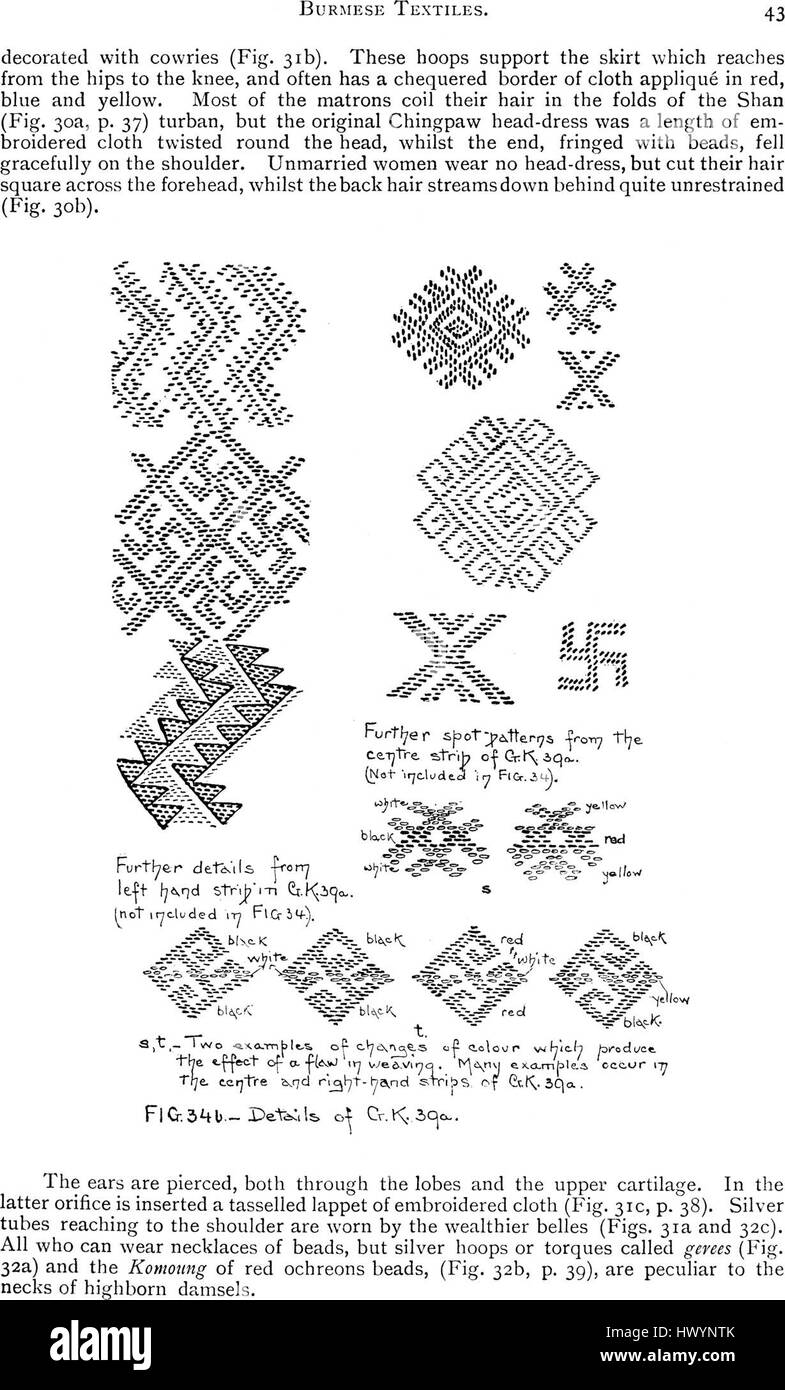 BURMESE TEXTILES.
43
decorated with cowries (Fig. 31b). These hoops support the skirt which reaches
from the hips to the knee, and often has a chequered border of cloth appliqué in red,
blue and yellow. Most of the matrons coil their hair in the folds of the Shan
(Fig. 30a, p. 37) turban, but the original Chingpaw head-dress was a length of em-
broidered cloth twisted round the head, whilst the end, fringed with beads, fell
gracefully on the shoulder. Unmarried women wear no head-dress, but cut their hair
square across the forehead, whilst the back hair streams down behind quite unrestrained
(Fig. 30b).
Further spot-patterns from the
centre strip of G.K. 39a.
(Not included in FIG. 34).
white
black
white
yellow
red
yellow
s
Further details from
left hand strip in G.K.39a.
(not included in FIG 34).
black
white
black
black
black
red
white
red
black
yellow
black.
t.
s,t,- Two examples of changes of colour which produce
the effect of a flaw in weaving. Many examples occur in
the centre and right-hand strips of G.K. 39a.
FIG.34b.- Details of G.K. 39a.
The ears are pierced, both through the lobes and the upper cartilage. In the
latter orifice is inserted a tasselled lappet of embroidered cloth (Fig. 31c, p. 38). Silver
tubes reaching to the shoulder are worn by the wealthier belles (Figs. 31a and 32c).
All who can wear necklaces of beads, but silver hoops or torques called gerees (Fig.
32a) and the Komoung of red ochreons beads, (Fig. 32b, p. 39), are peculiar to the
necks of highborn damsels.
alamy
Image ID: HWYNTK
www.alamy.com